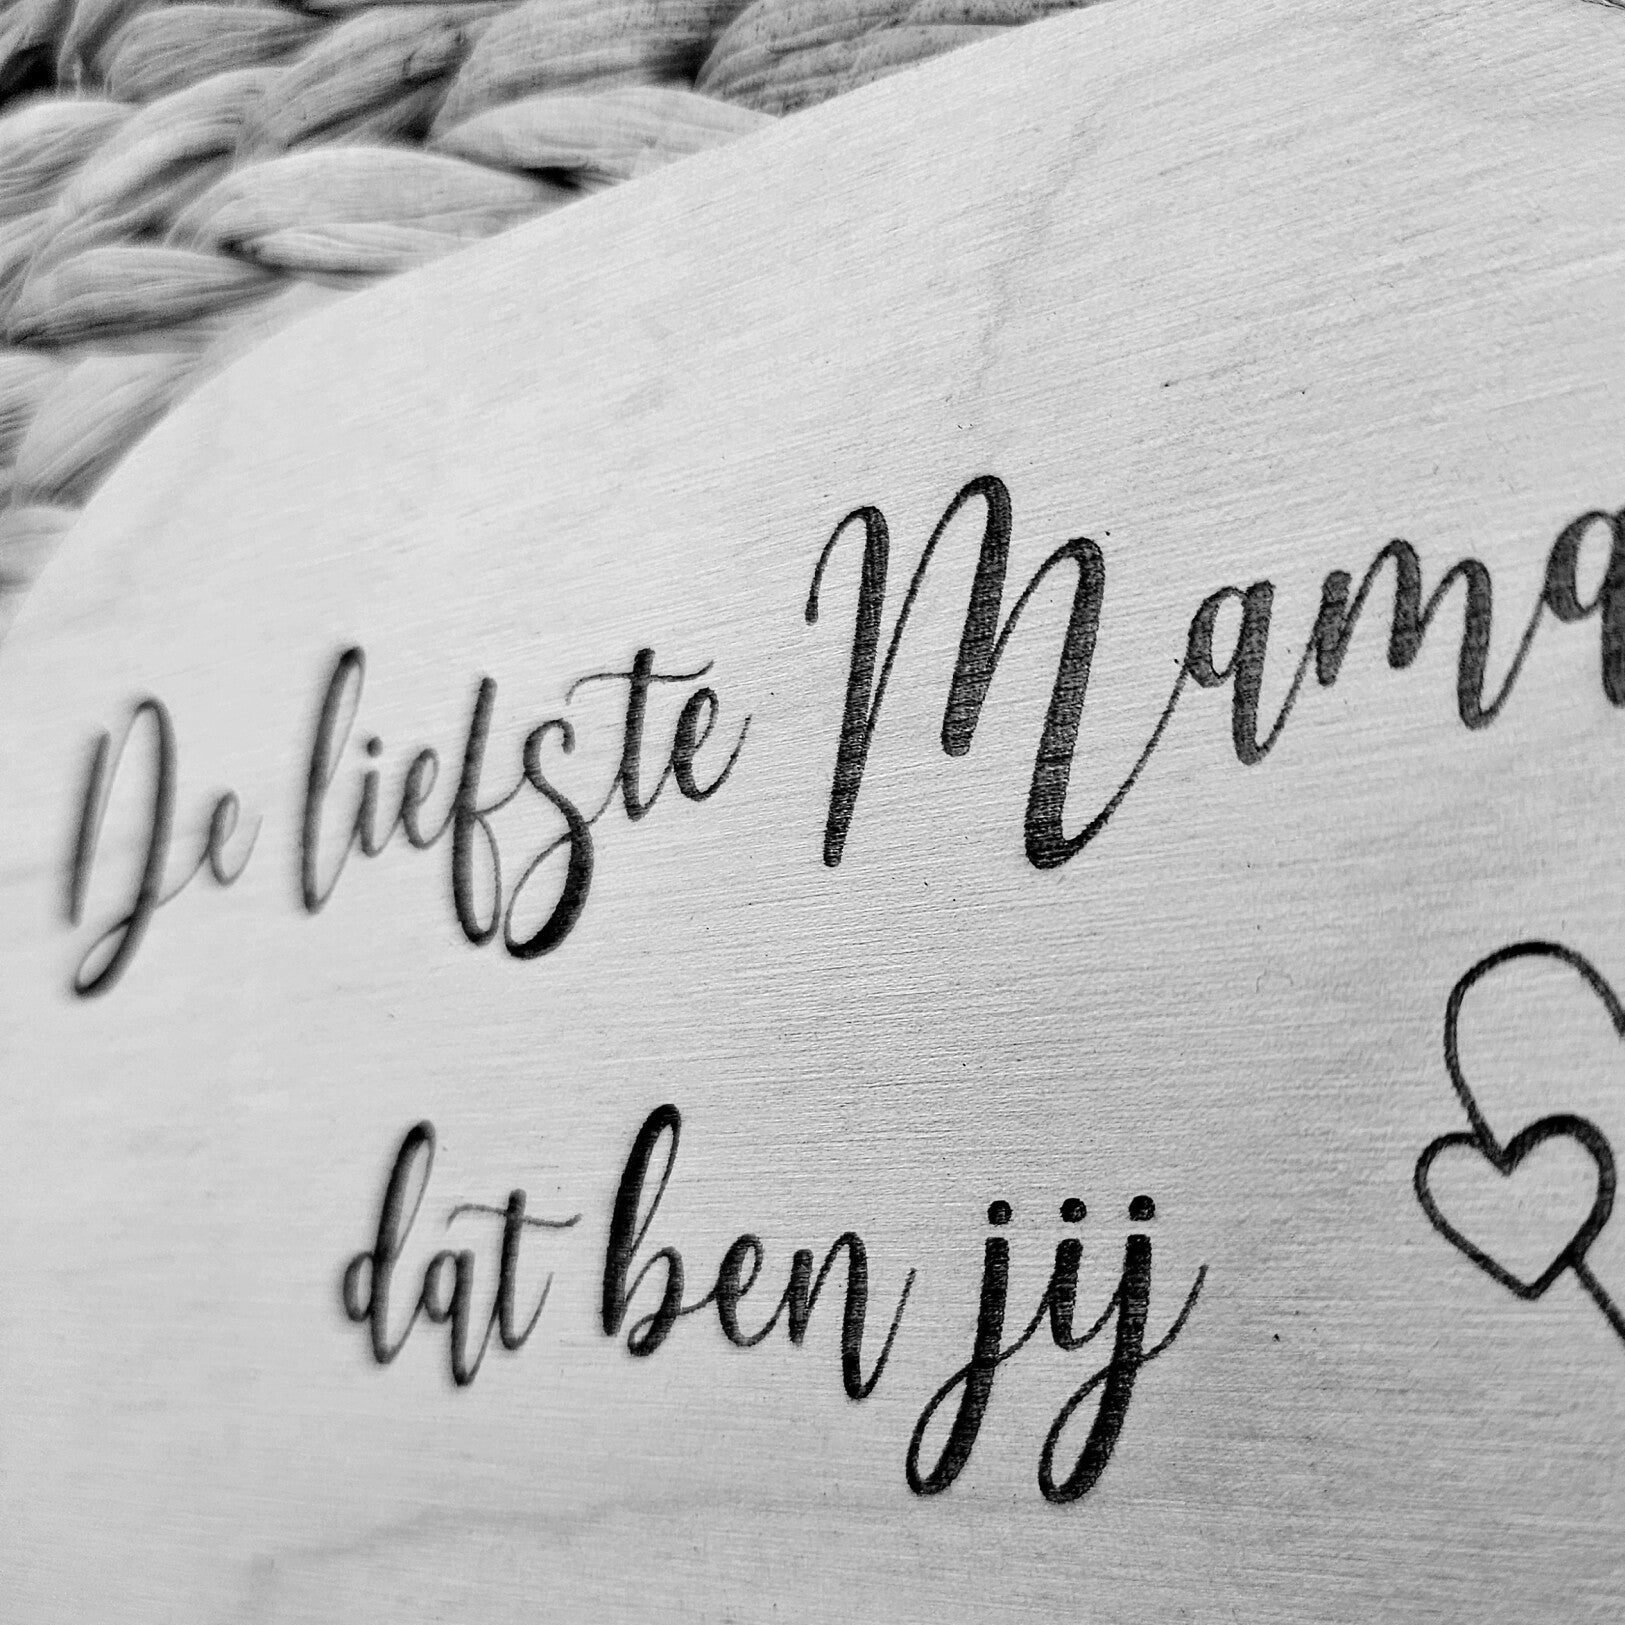 De liefste Mama
dat ben jij